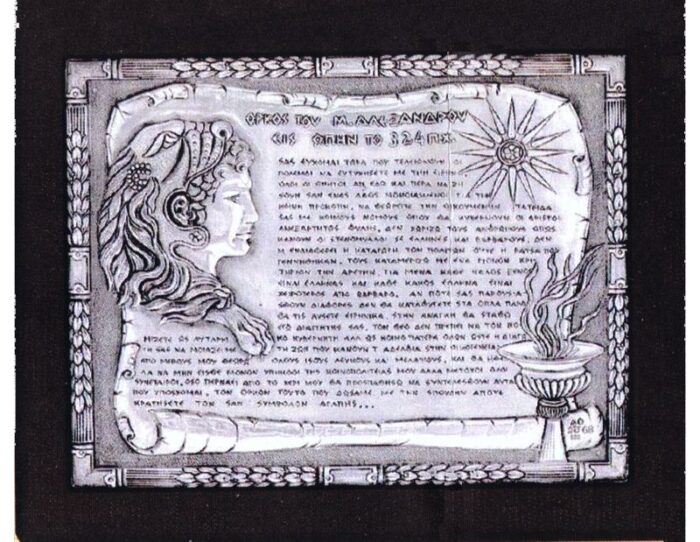 ΟΡΚΟΣ ΤΟΥ Μ. ΑΛΕΞΑΝΔΡΟΥ
ΕΙΣ ΩΠΗΝ ΤΟ 324 ΠΧ
ΣΑΣ ΕΥΧΟΜΑΙ ΤΩΡΑ ΠΟΥ ΤΕΛΕΙΩΝΟΥΝ ΟΙ
ΠΟΛΕΜΟΙ ΝΑ ΕΥΤΥΧΗΣΕΤΕ ΜΕ ΤΗΝ ΕΙΡΗΝΗ,
ΟΛΟΙ ΟΙ ΘΝΗΤΟΙ ΑΠ ΕΔΩ ΚΑΙ ΠΕΡΑ ΝΑ ΖΗ
ΣΟΥΝ ΣΑΝ ΕΝΑΣ ΛΑΟΣ ΜΟΝΟΙΑΣΜΕΝΟΣ ΓΙΑ ΤΗΝ
ΚΟΙΝΗ ΠΡΟΚΟΠΗ, ΝΑ ΘΕΩΡΕΙΤΕ ΤΗΝ ΟΙΚΟΥΜΕΝΗΝ ΠΑΤΡΙΔΑ
ΣΑΣ ΜΕ ΚΟΙΝΟΥΣ ΝΟΜΟΥΣ ΟΠΟΥ ΘΑ ΚΥΒΕΡΝΟΥΝ ΟΙ ΑΡΙΣΤΟΙ
ΑΝΕΞΑΡΤΗΤΟΣ ΦΥΛΗΣ, ΔΕΝ ΧΩΡΙΖΩ ΤΟΥΣ ΑΝΘΡΩΠΟΥΣ ΟΠΩΣ
ΚΑΝΟΥΝ ΟΙ ΣΤΕΝΟΜΥΑΛΟΙ ΣΕ ΕΛΛΗΝΕΣ ΚΑΙ ΒΑΡΒΑΡΟΥΣ, ΔΕΝ
Μ ΕΝΔΙΑΦΕΡΕΙ Η ΚΑΤΑΓΩΓΗ ΤΩΝ ΠΟΛΙΤΩΝ ΟΥΤΕ Η ΡΑΤΣΑ ΠΟΥ
ΓΕΝΝΗΘΗΚΑΝ, ΤΟΥΣ ΚΑΤΑΜΕΡΙΖΩ ΜΕ ΕΝΑ ΜΟΝΟΝ ΚΡΙ
ΤΗΡΙΟΝ ΤΗΝ ΑΡΕΤΗΝ, ΓΙΑ ΜΕΝΑ ΚΑΘΕ ΚΑΛΟΣ ΞΕΝΟΣ
ΕΙΝΑΙ ΕΛΛΗΝΑΣ ΚΑΙ ΚΑΘΕ ΚΑΚΟΣ ΕΛΛΗΝΑ ΕΙΝΑΙ
ΧΕΙΡΟΤΕΡΟΣ ΑΠΟ ΒΑΡΒΑΡΟ, ΑΝ ΠΟΤΕ ΣΑΣ ΠΑΡΟΥΣΙΑ
ΣΘΟΥΝ ΔΙΑΦΟΡΕΣ ΔΕΝ ΘΑ ΚΑΤΑΦΥΓΕΤΕ ΣΤΑ ΟΠΛΑ ΠΑΡΑ
ΘΑ ΤΙΣ ΛΥΣΕΤΕ ΕΙΡΗΝΙΚΑ, ΣΤΗΝ ΑΝΑΓΚΗ ΘΑ ΣΤΑΘΩ
ΕΓΩ ΔΙΑΙΤΗΤΗΣ ΣΑΣ, ΤΟΝ ΘΕΟ ΔΕΝ ΠΡΕΠΕΙ ΝΑ ΤΟΝ ΝΟΜΙ
ΖΕΤΕ ΩΣ ΑΥΤΑΡΧΙΚΟ ΚΥΒΕΡΝΗΤΗ ΑΛΛ ΩΣ ΚΟΙΝΟ ΠΑΤΕΡΑ ΟΛΩΝ ΩΣΤΕ Η ΔΙΑΓΩ
ΓΗ ΣΑΣ ΝΑ ΜΟΙΑΖΕΙ ΜΕ ΤΗ ΖΩΗ ΠΟΥ ΚΑΝΟΥΝ Τ ΑΔΕΛΦΙΑ ΣΤΗΝ ΟΙΚΟΓΕΝΕΙΑ
ΑΠΟ ΜΕΡΟΥΣ ΜΟΥ ΘΕΩΡΩ ΟΛΟΥΣ ΙΣΟΥΣ ΛΕΥΚΟΥΣ ΚΑΙ ΜΕΛΑΨΟΥΣ, ΚΑΙ ΘΑ ΗΘΕ
ΛΑ ΝΑ ΜΗΝ ΕΙΣΘΕ ΜΟΝΟΝ ΥΠΗΚΟΟΙ ΤΗΣ ΚΟΙΝΟΠΟΛΙΤΕΙΑΣ ΜΟΥ ΑΛΛΑ ΜΕΤΟΧΟΙ ΟΛΟΙ
ΣΥΝΕΤΑΙΡΟΙ, ΟΣΟ ΠΕΡΝΑΕΙ ΑΠΟ ΤΟ ΧΕΡΙ ΜΟΥ ΘΑ ΠΡΟΣΠΑΘΗΣΩ ΝΑ ΣΥΝΤΕΛΕΣΘΟΥΝ ΑΥΤΑ
ΠΟΥ ΥΠΟΣΧΟΜΑΙ, ΤΟΝ ΟΡΚΟΝ ΤΟΥΤΟ ΠΟΥ ΔΩΣΑΜΕ ΜΕ ΤΗΝ ΣΠΟΝΔΗΝ ΑΠΟΨΕ
ΚΡΑΤΗΣΕΤΕ ΤΟΝ ΣΑΝ ΣΥΜΒΟΛΟΝ ΑΓΑΠΗΣ...